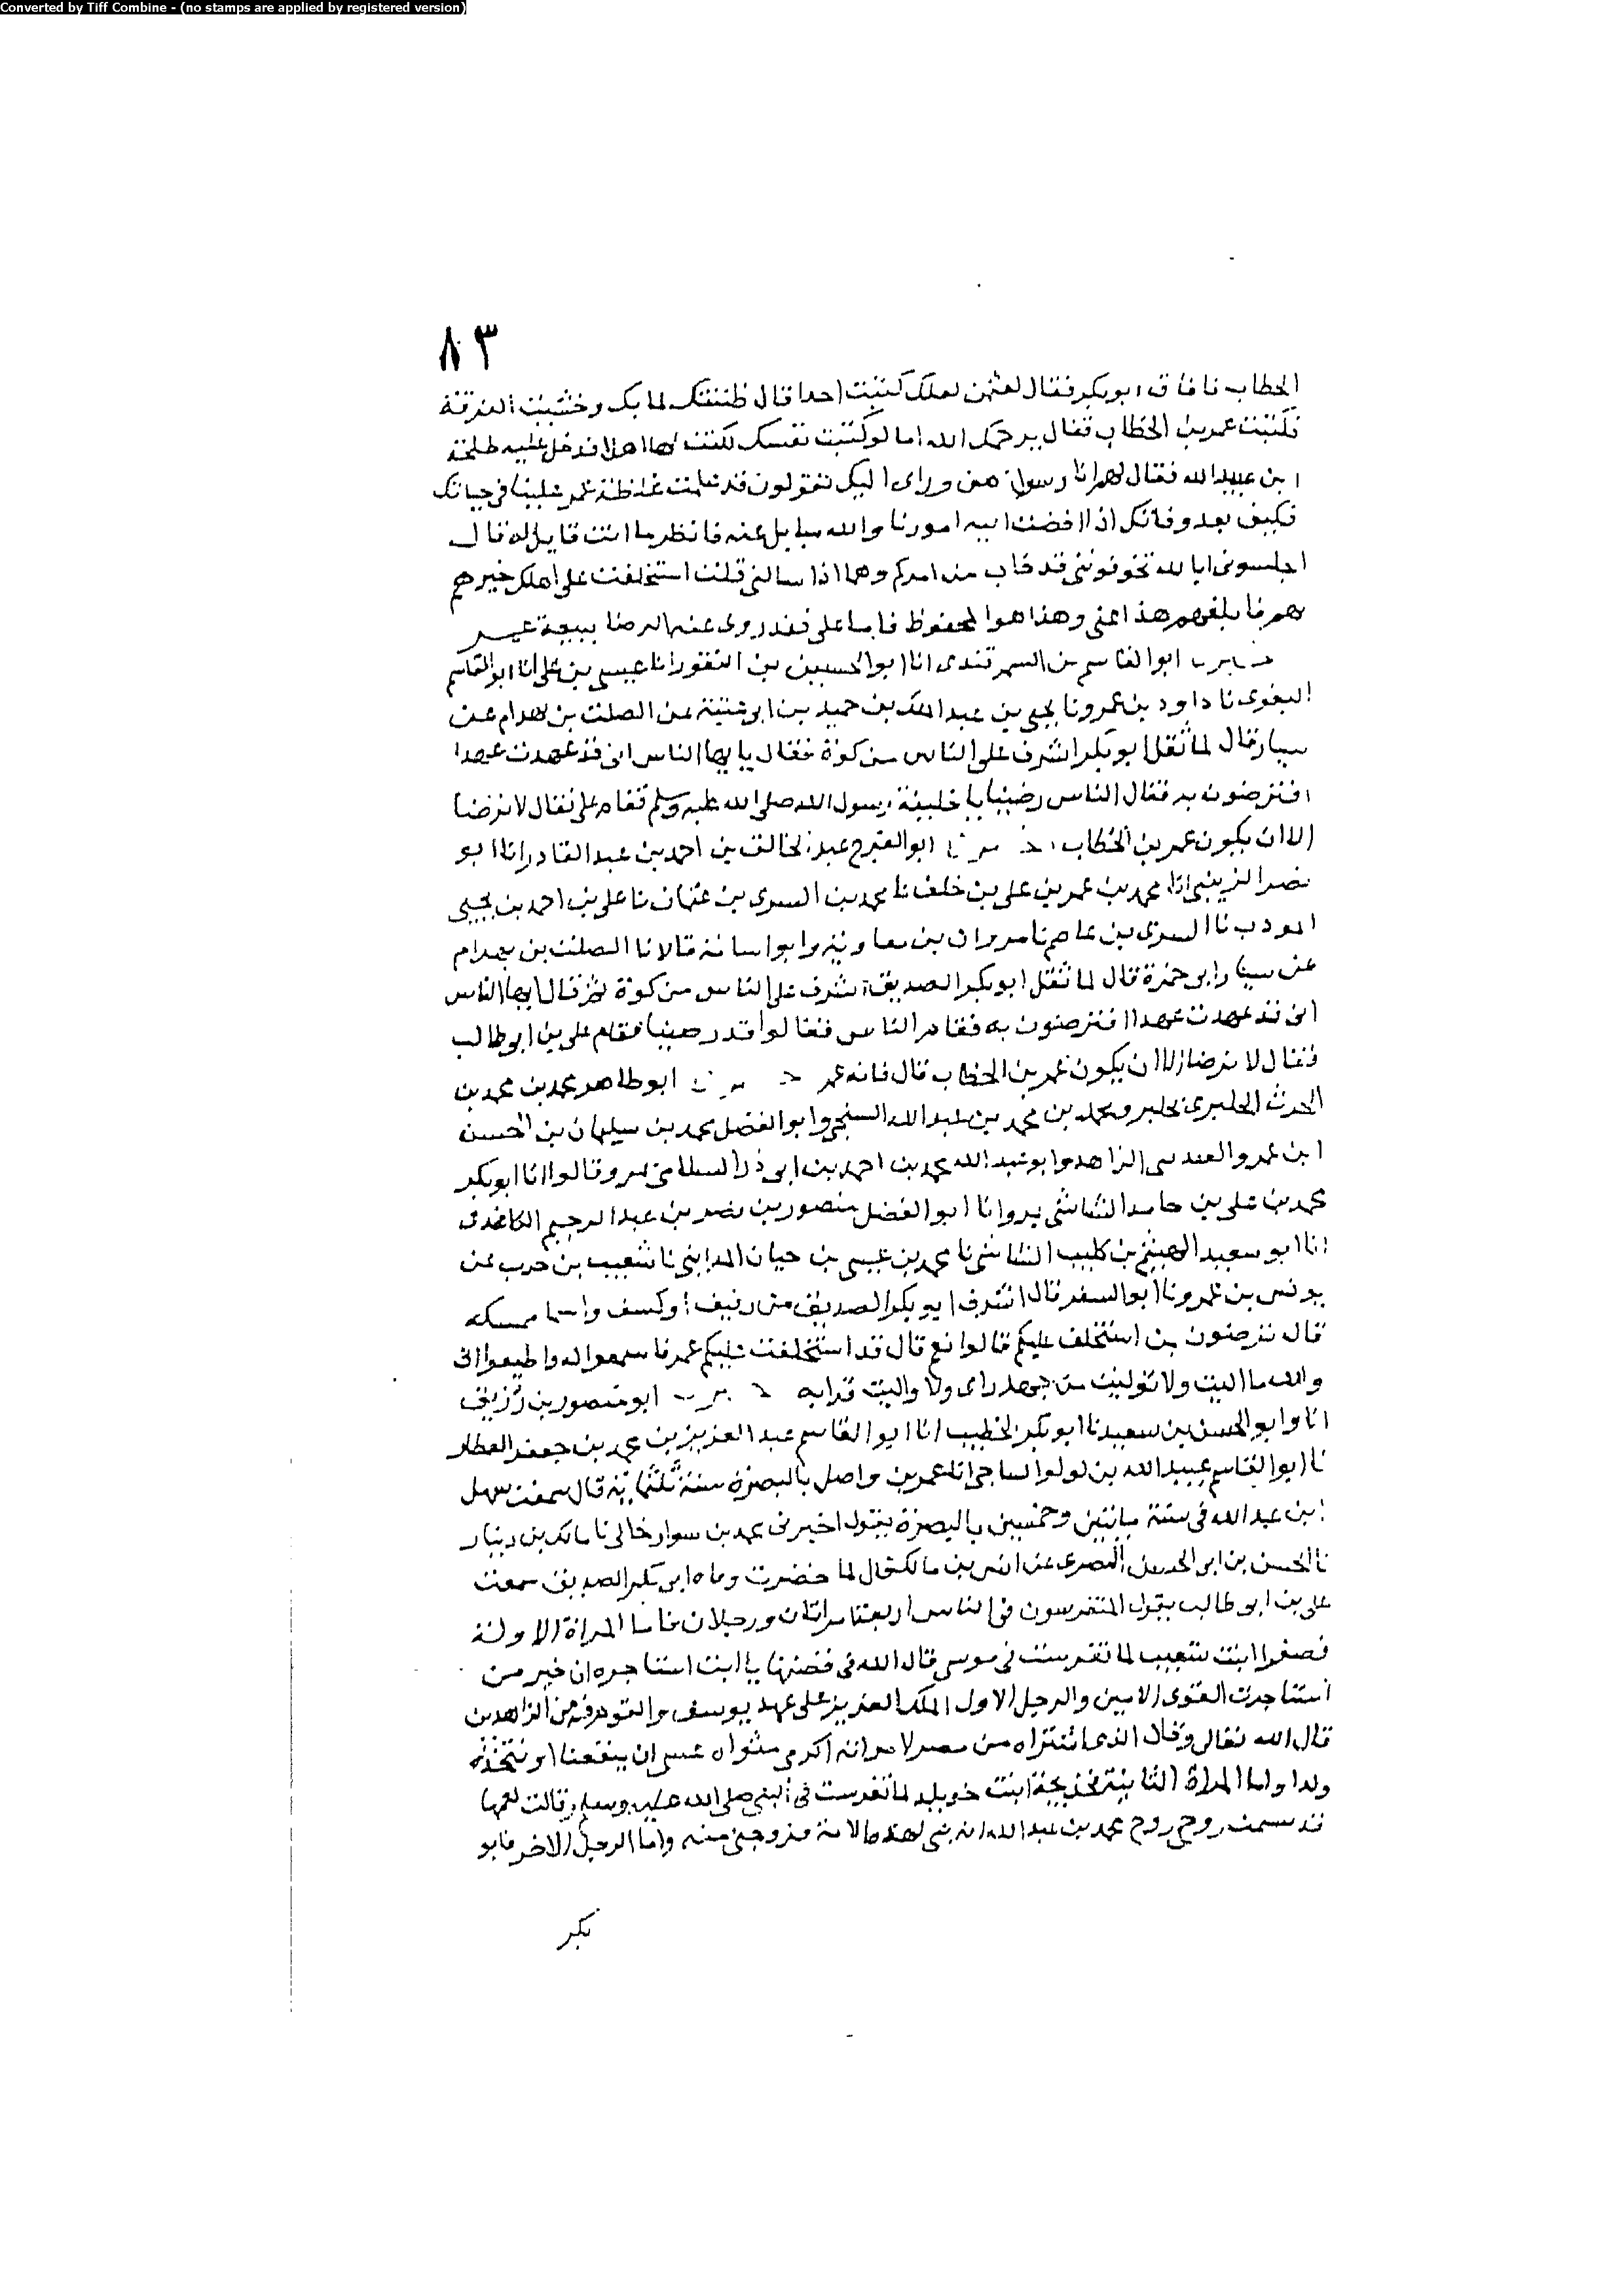 Converted by Tiff Combine - (no stamps are applied by registered version)
٨٣
الخطاب فافاق ابو بكر فقال لعثمن لعلك كتبت احدا قال ظننتك لما بك وخشيت الفرقة
فكتبت عمر بن الخطاب فقال يرحمك الله اما لو كتبت نفسك لكنت لها اهلا فدخل عليه طلحة
ابن عبيد الله فقال لهم انا رسول من وراى اليك يقولون قد علمت غلظة عمر علينا في حياتك
فكيف بعد وفاتك اذا افضت اليه امورنا والله سايل عنه فانظر ما انت قايل له قال
اجلسونى ابالله تخوفونني قد خاب من امركم وهما اذا سالني قلت استخلفت على اهلك خيرهم
لهم فابلغهم هذا عني وهذا هو المحفوظ فاما على فقد روى عنه الرضا ببيعة عمر
ابو القاسم بن السمرقندى انا ابو الحسين بن النقور انا عيسى بن على انا ابو القاسم
البغوى نا داود بن عمرو نا يحيى بن عبد الملك بن حميد بن ابى غنية عن الصلت بن بهرام عن
سيار قال لما ثقل ابو بكر اشرف على الناس من كوة فقال يايها الناس انى قد عهدت عهدا
افترضون به فقال الناس رضينا يا خليفة رسول الله صلى الله عليه وسلم فقام على فقال لا نرضا
الا ان يكون عمر بن الخطاب ابو الفرج عبد الخالق بن احمد بن عبد القادر انا ابو
نصر الزينبى انا محمد بن عمر بن على بن خلف نا محمد بن السرى بن عثمان نا على بن احمد بن يحيى
المودب نا السرى بن عاصم نا مروان بن معاوية وابو اسامة قالا نا الصلت بن بهرام
عن سيار ابى حمزة قال لما ثقل ابو بكر الصديق اشرف على الناس من كوة ثم قال ايها الناس
انى قد عهدت عهدا افترضون به فقام الناس فقالوا قد رضينا فقام على بن ابى طالب
فقال لا نرضا الا ان يكون عمر بن الخطاب قال فانه عمر ابو طاهر محمد بن محمد بن
محمد بن عبد الله السنجى وابو الفضل محمد بن سليمان بن الحسن
ابن عمرو الزاهد وابو عبد الله محمد بن احمد بن ابى ذر السلامى بمرو قالوا انا ابو بكر
محمد بن على بن حامد الشاشى بمرو انا ابو الفضل منصور بن نصر بن عبد الرحيم الكاغدى
انا ابو سعيد الهيثم بن كليب الشاشى نا محمد بن عيسى بن حيان المداينى نا شعيب بن حرب عن
يونس بن عمرو نا ابو السفر قال اشرف ابو بكر الصديق من كنيف ممسكه
قال ترضون بمن استخلف عليكم قالوا نعم قال قد استخلفت عليكم عمر فاسمعوا له واطيعوا انى
والله ما اليت ولا توليت من جهد راى ولا واليت قرابه ابو منصور بن زريق
انا وابو الحسن بن سعيد نا ابو بكر الخطيب انا ابو القاسم عبد العزيز بن محمد بن جعفر العطار
نا ابو القاسم عبيد الله بن لولو الساجى انا عمر بن واصل بالبصرة سنة ثلثماية قال سمعت سهل
ابن عبد الله فى سنة مايتين وخمسين بالبصرة يقول اخبرنى محمد بن سوار خالى نا مالك بن دينار
نا الحسن بن ابى الحسن البصرى عن انس بن مالك قال لما حضرت وفاة ابى بكر الصديق سمعت
على بن ابى طالب يقول المتفرسون فى الناس اربعة امراتان ورجلان فاما المراة الاولة
فصفرا ابنت شعيب لما تفرست فى موسى قال الله فى قصتها يا ابت استاجره ان خير من
استاجرت القوى الامين والرجل الاول الملك العزيز على عهد يوسف والقوم فيه من الزاهدين
قال الله تعالى وقال الذى اشتراه من مصر لامراته اكرمى مثواه عسى ان ينفعنا او نتخذه
ولدا واما المراة الثانية فخديجة ابنت خويلد لما تفرست فى النبى صلى الله عليه وسلم وقالت لعمها
قد سمت روحى روح محمد بن عبد الله انه نبى لهذه الامة فزوجنى منه واما الرجل الاخر فابو
بكر